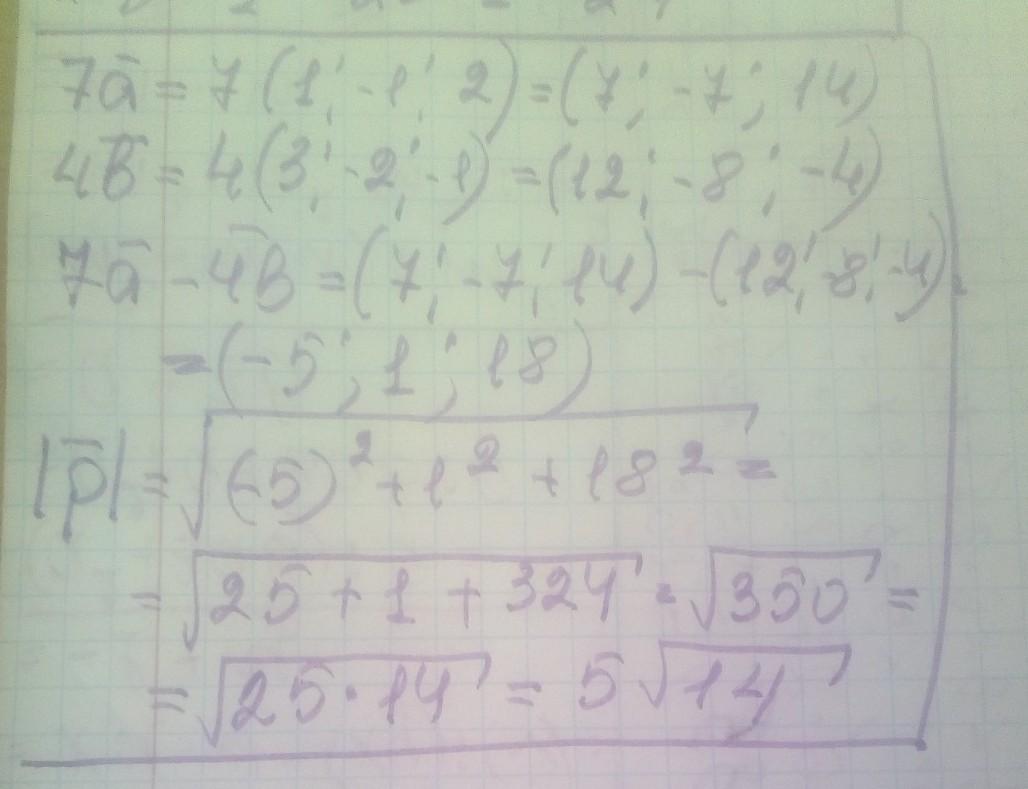 7a̅ = 7(1; -1; 2) = (7; -7; 14)
4b̅ = 4(3; -2; -1) = (12; -8; -4)
7a̅ - 4b̅ = (7; -7; 14) - (12; -8; -4)
= (-5; 1; 18)
|p̅| = √((-5)² + 1² + 18²) =
= √(25 + 1 + 324) = √350 =
= √(25·14) = 5√14